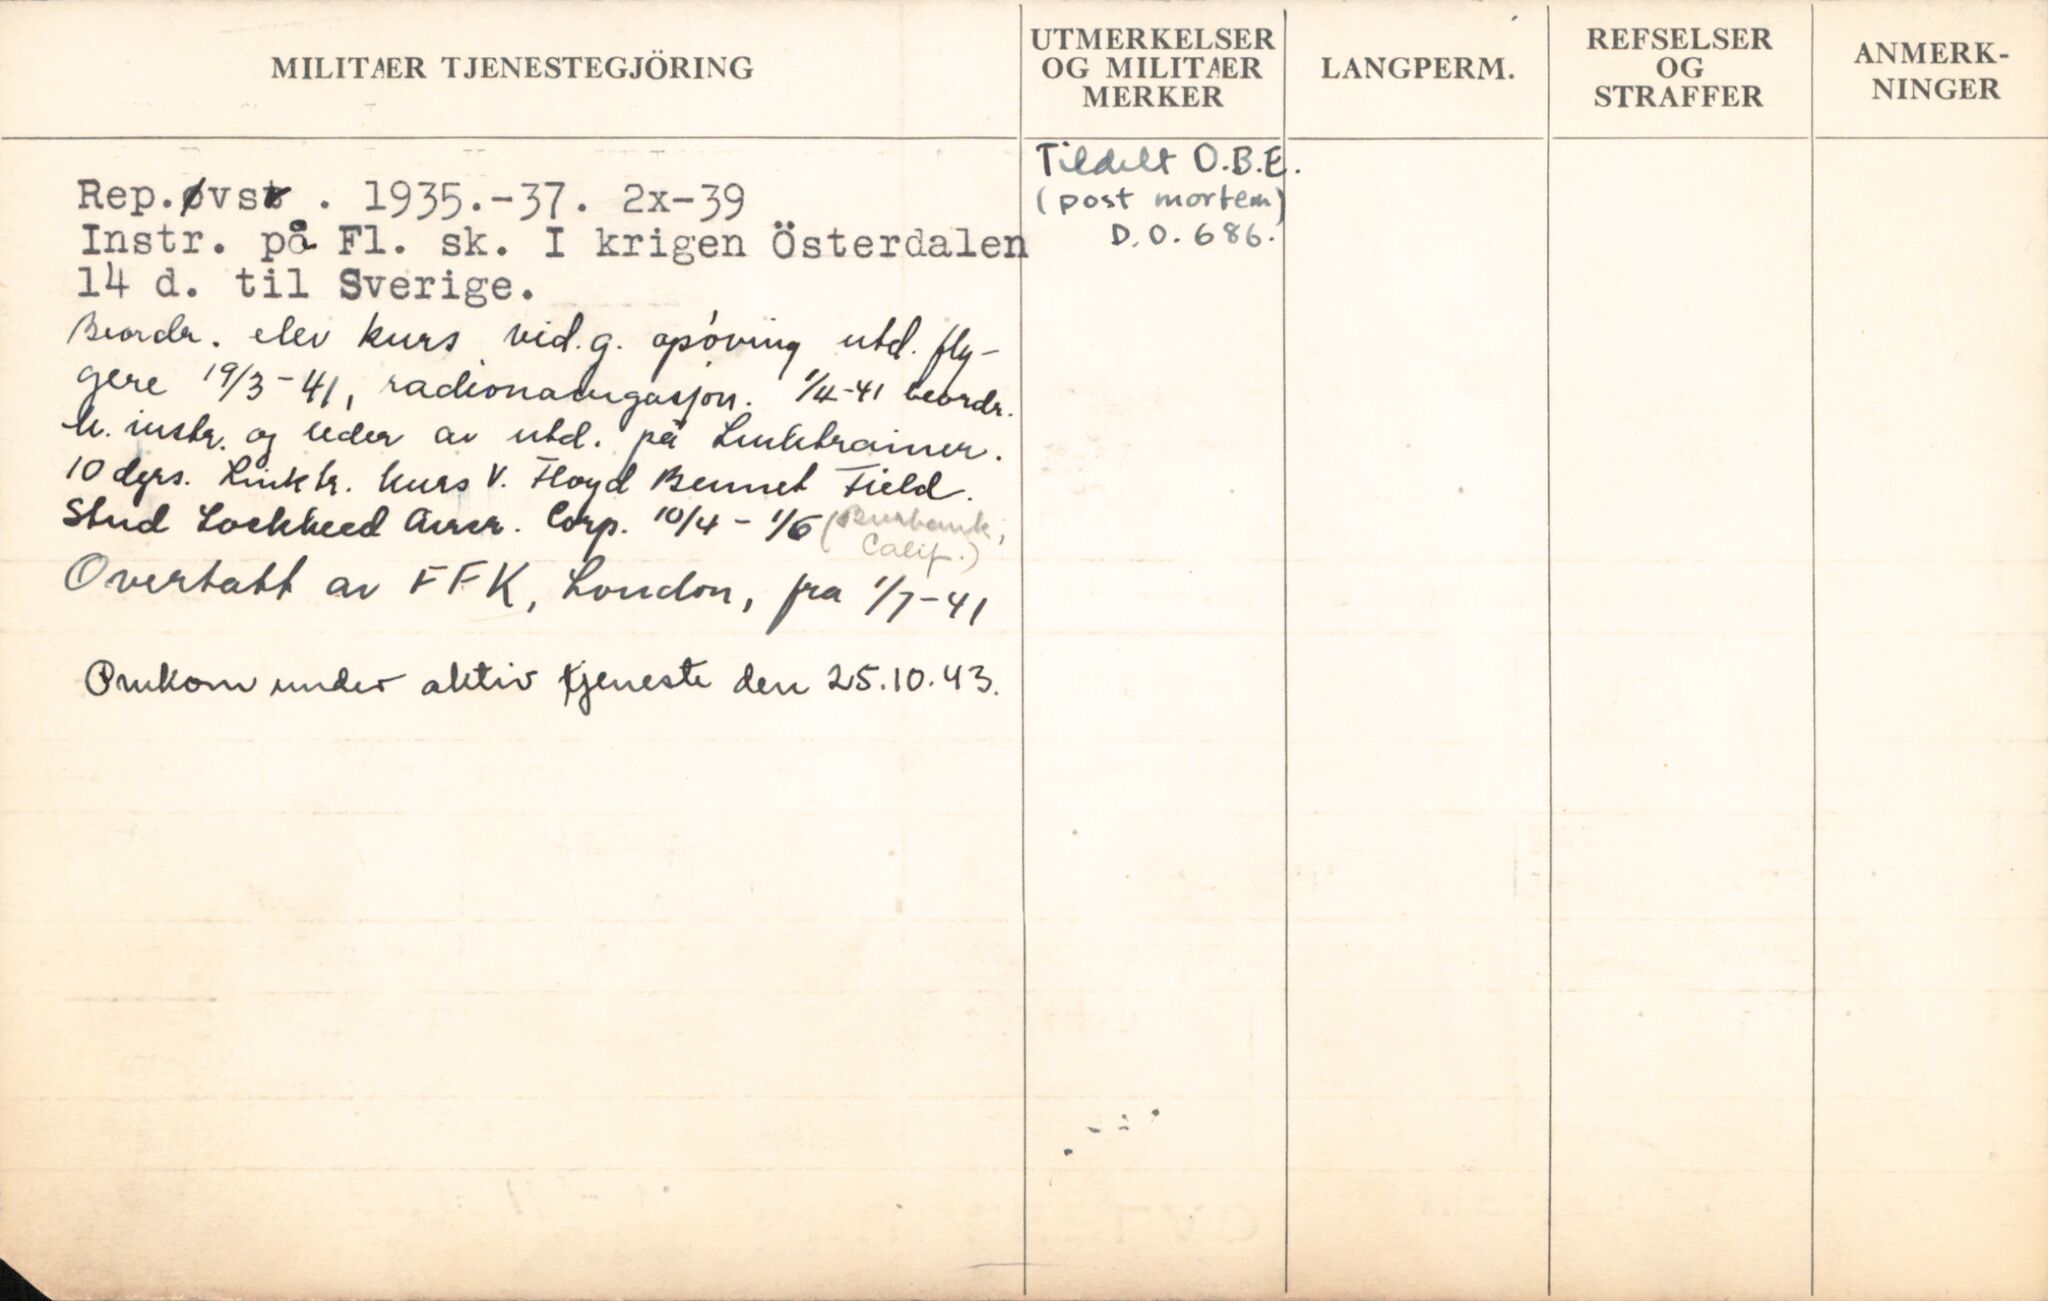 MILITÆR TJENESTEGJÖRING
UTMERKELSER
OG MILITÆR
MERKER
LANGPERM.
REFSELSER
OG
STRAFFER
ANMERK-
NINGER
Rep.øvst . 1935.-37. 2x-39
Instr. på Fl. sk. I krigen Österdalen
14 d. til Sverige.
Beordr. elev kurs vid.g. opöving utd. fly-
gere 19/3-41, radionavigasjon. 1/4-41 beordr.
til instr. og leder av utd. på Linktrainer.
10 dgrs. Linktr. kurs v. Floyd Bennet Field.
Stud Lockheed Aircr. Corp. 10/4 - 1/6 (Burbank,
Calif.)
Overtatt av FFK, London, fra 1/7-41
Omkom under aktiv tjeneste den 25.10.43.
Tildelt O.B.E.
(post mortem)
D.O. 686.